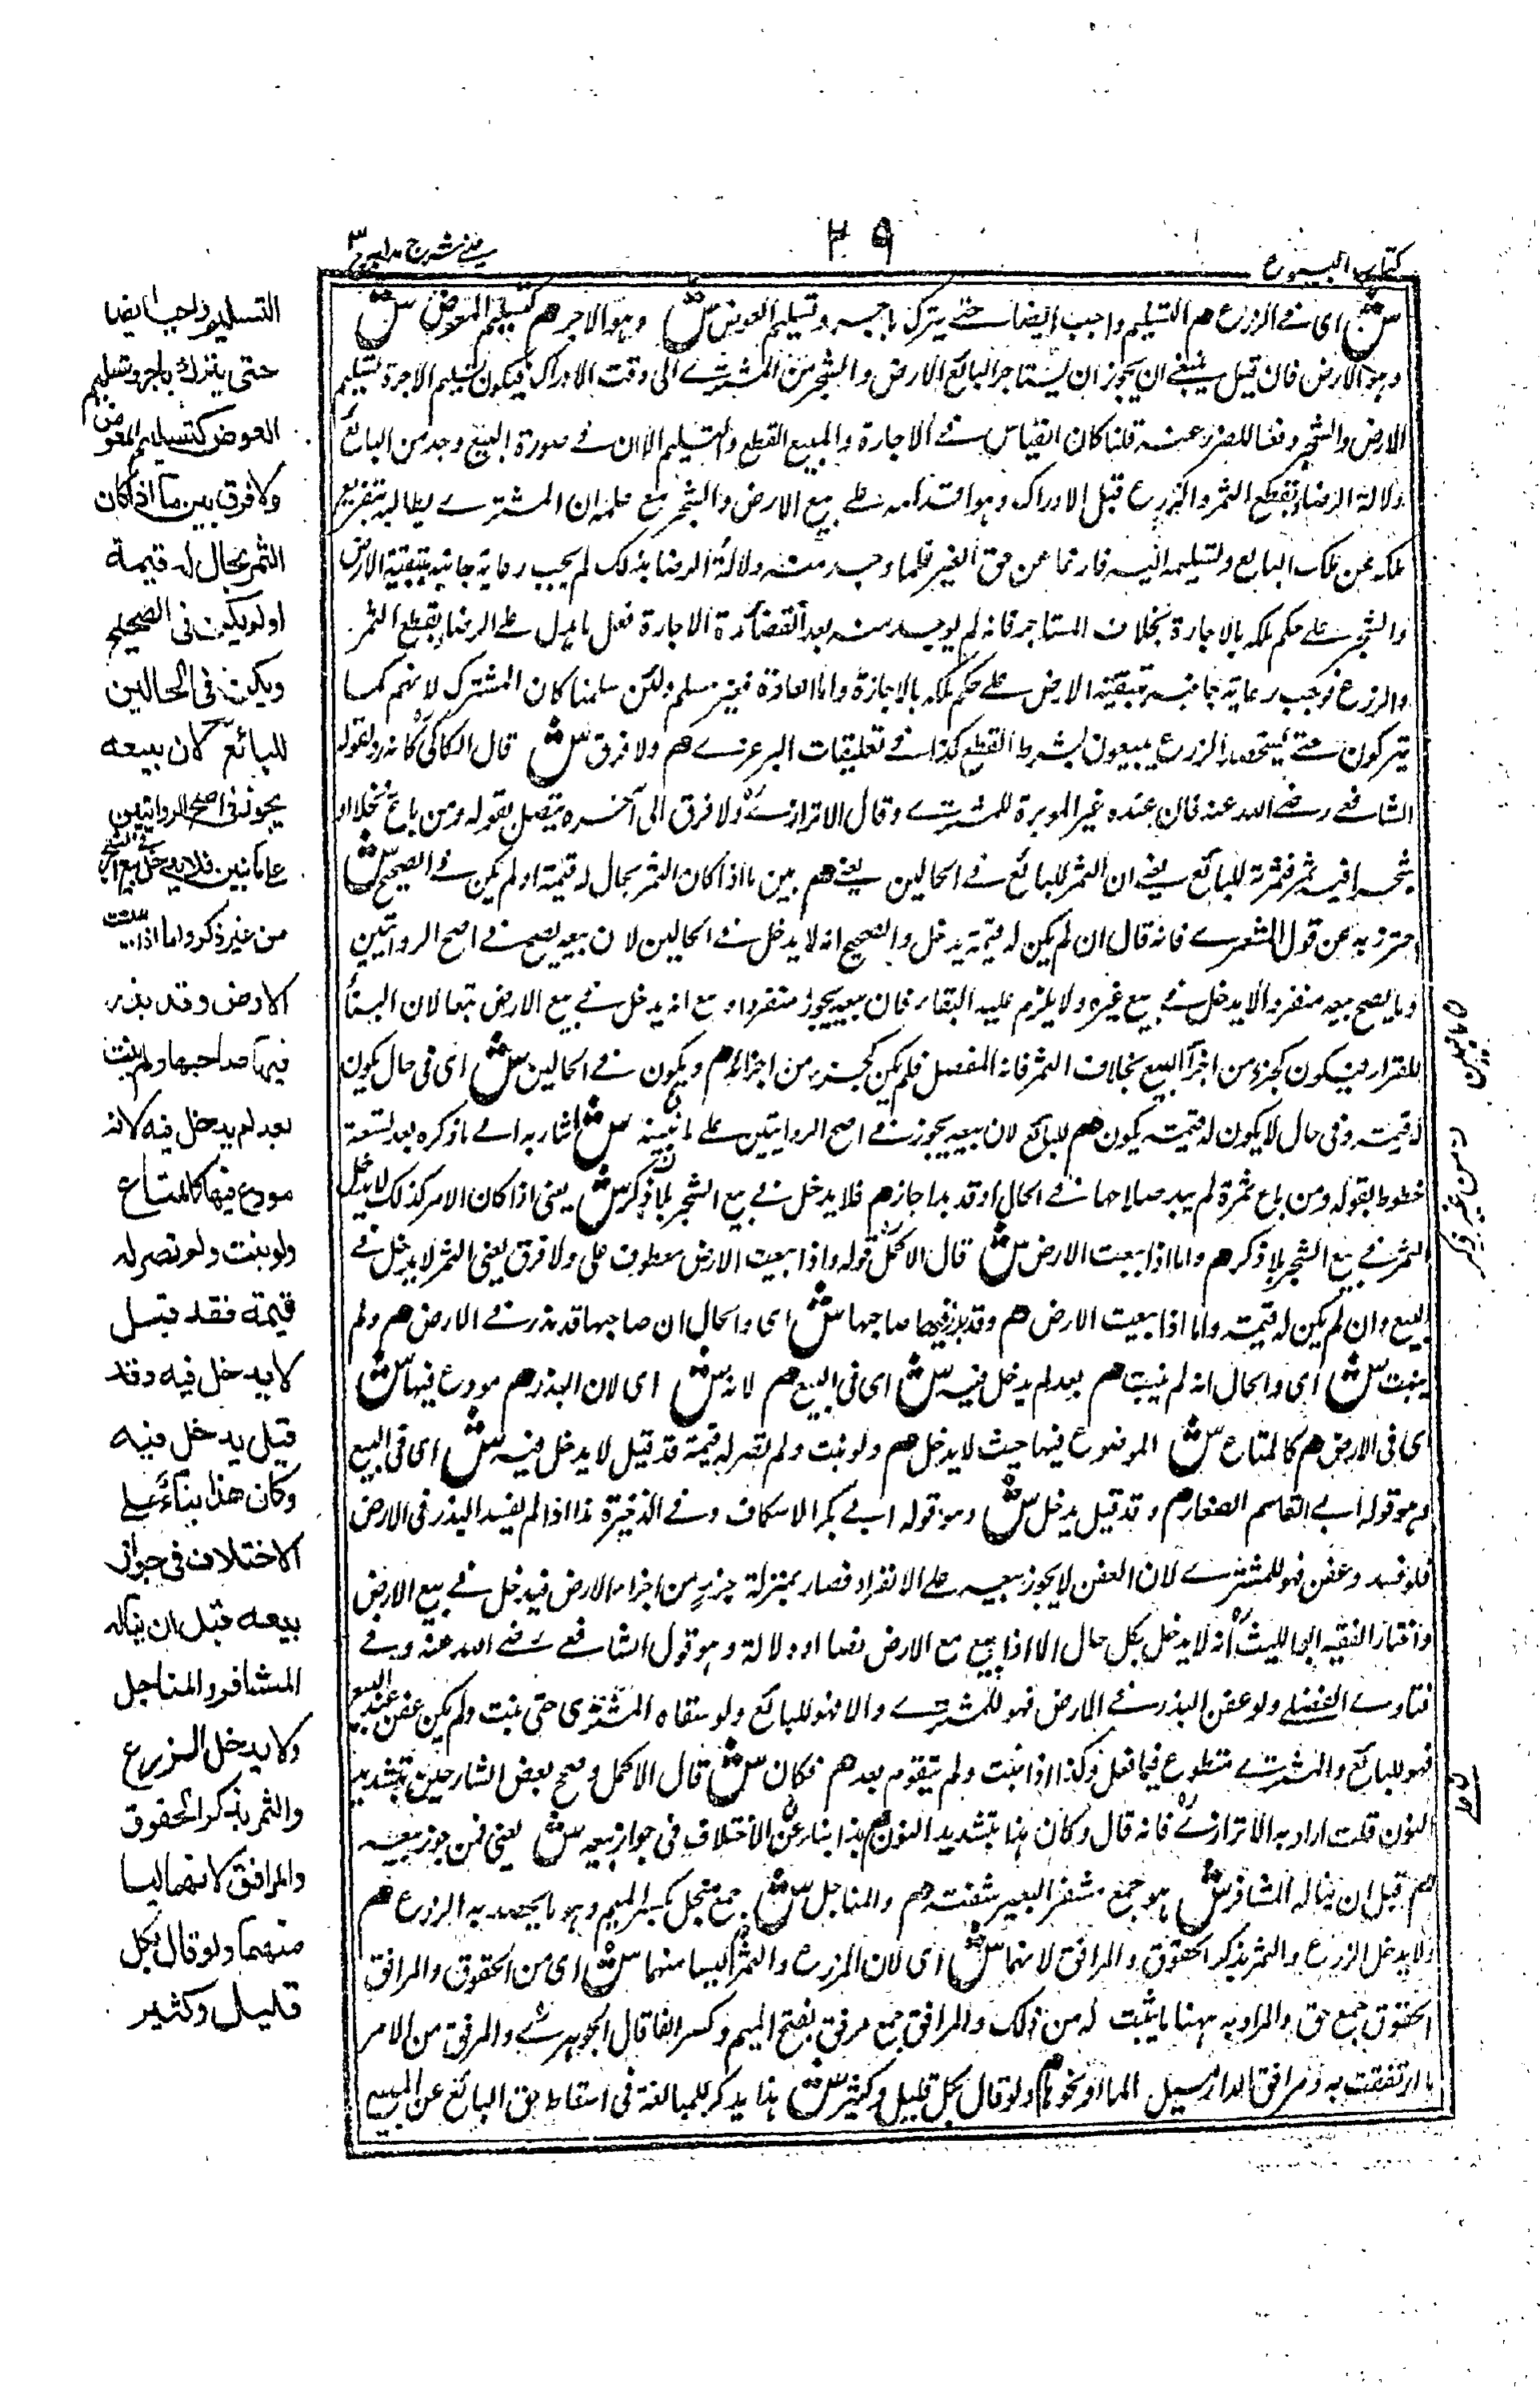 كتاب البيوع
٢٩
عيني شرح هداية ج ٣
ش اى فے الزرع هم التسليم واجب ايضا حتے يترك باجر وتسليم العوض ش وهو الاجر هم كتسليم المعوض ش
وهو الارض فان قيل ينبغے ان يجوز ان يستاجر البائع الارض والشجر من المشترے الى وقت الادراك فيكون تسليم الاجرة تسليم
الارض والشجر دفعا للضرر عنه قلنا كان القياس فے الاجارة والمبيع القطع والتسليم الا ان فے صورة البيع وجد من البائع
دلالة الرضا بقطع الثمر والزرع قبل الادراك وهو اقدامه علے بيع الارض والشجر مع علمه ان المشترے يطالبه بتفريغ
ملكه عن ملك البايع وتسليمه اليه فارغا عن حق الغير فلما وجدت منه دلالة الرضا بذلك لم يجب رعاية جانبه بتبقية الارض
والشجر علے حكم ملكه بالاجارة بخلاف المستاجر فانه لم يوجد منه بعد انقضاء مدة الاجارة فعل يدل علے الرضا بقطع الثمر
والزرع فوجب رعاية جانبه بتبقية الارض علے حكم ملكه بالاجازة واما العادة فغير مسلم ولئن سلمنا كان المشترك لانهم كما
يتركون حتے يستحصد الزرع يبيعون بشرط القطع كذا فے تعليقات البرغرے هم ولا فرق ش قال الكاكي كانه رد لقول
الشافعے رضے الله عنه فان عنده غير الموبرة للمشترے وقال الاترازے ولا فرق الى آخره يتصل بقوله ومن باع نخلا او
شجرا فيه ثمر فثمرته للبائع يعنے ان الثمر للبائع فے الحالين يعنے هم بين ما اذا كان الثمر بحال له قيمة او لم يكن فے الصحيح ش
احترز به عن قول الشعرے فانه قال ان لم يكن له قيمة يدخل والصحيح انه لا يدخل فے الحالين لان بيعه يصح فے اصح الروايتين
وما يصح بيعه منفردا لا يدخل فے بيع غيره ولا يلزم عليه البقاء فان بيعه يجوز منفردا ومع انه يدخل فے بيع الارض تبعا لان البنأ
للقرار فيكون كجزء من اجزأ البيع بخلاف الثمر فانه المفصل فلم يكن كجزء من اجزائه هم ويكون فے الحالين ش اى فى حال يكون
له قيمته وفى حال لا يكون له قيمته يكون هم للبائع لان بيعه يجوز فے اصح الروايتين علے ما نبينه ش اشار به الے ما ذكره بعد تسعة
خطوط بقوله ومن باع ثمرة لم يبد صلاحها فے الحال او قد بدا جاز هم فلا يدخل فے بيع الشجر بلا ذكر ش يعنى اذا كان الامر كذلك لا يدخل
الثمر فے بيع الشجر بلا ذكر هم واما اذا بيعت الارض ش قال الاكمل قوله واذا بيعت الارض معطوف على ولا فرق يعنى الثمر لا يدخل فے
البيع وان لم يكن له قيمته واما اذا بيعت الارض هم وقد بذر فيها صاحبها ش اى والحال ان صاحبها قد بذر فے الارض هم ولم
ينبت ش اى والحال انه لم ينبت هم بعد لم يدخل فيه ش اى فى البيع هم لانه ش اى لان البذر هم مودع فيها ش
اى فى الارض هم كالمتاع ش الموضوع فيها حيث لا يدخل هم ولو نبت ولم تصر له قيمة قد قيل لا يدخل فيه ش اى فى البيع
وهو قول ابے القاسم الصفار هم وقد قيل يدخل ش وهو قول ابے بكر الاسكاف وفے الذخيرة هذا اذا لم يفسد البذر فى الارض
فلو فسد وعفن فهو للمشترے لان العفن لا يجوز بيعه علے الانفراد فصار بمنزلة جزء من اجزاء الارض فيدخل فے بيع الارض
واختار الفقيه ابو الليث انه لا يدخل بكل حال الا اذا بيع مع الارض نصا او دلالة وهو قول الشافعے رضے الله عنه وفے
فتاوے الفضلے ولو عفن البذر فے الارض فهو للمشترے والا فهو للبائع ولو سقاه المشترى حتى نبت ولم يكن عفن عند البيع
فهو للبائع والمشترے متطوع فيما فعل وكذا اذا نبت ولم يتقوم بعد هم فكان ش قال الاكمل وصحح بعض الشارحين بتشديد
النون قلت اراد به الاترازے فانه قال وكان هنا بتشديد النون هم هذا بناء على الاختلاف فى جواز بيعه ش يعنى فمن جوز بيعه
هم قبل ان يناله المشافر ش هو جمع مشفر البعير شفته هم والمناجل ش جمع منجل بكسر الميم وهو ما يحصد به الزرع هم
ولا يدخل الزرع والثمر بذكر الحقوق والمرافق لانهما ش اى لان الزرع والثمر ليسا منهما ش اى من الحقوق والمرافق
الحقوق جمع حق والمراد به ههنا ما يثبت له من ذلك والمرافق جمع مرفق بفتح الميم وكسر الفا قال الجوهرے والمرفق من الامر
ما ارتفقت به ومرافق الدار مسيل الما او نحوها هم ولو قال بكل قليل وكثير ش هذا يذكر للمبالغة فى اسقاط حق البائع عن المبيع
التسليم واجب ايضا
حتى يترك باجر وتسليم
العوض كتسليم المعوض
ولا فرق بين ما اذا كان
الثمر بحال له قيمة
او لم يكن فى الصحيح
ويكون فى الحالين
للبائع لان بيعه
يجوز فى اصح الروايتين
على ما نبين فلا يدخل فى بيع الشجر
من غير ذكر واما اذا بيعت
الارض وقد بذر
فيها صاحبها ولم ينبت
بعد لم يدخل فيه لانه
مودع فيها كالمتاع
ولو نبت ولم تصر له
قيمة فقد قيل
لا يدخل فيه وقد
قيل يدخل فيه
وكان هذا بناءً على
الاختلاف فى جواز
بيعه قبل ان يناله
المشافر والمناجل
ولا يدخل الزرع
والثمر بذكر الحقوق
والمرافق لانهما ليسا
منهما ولو قال بكل
قليل وكثير